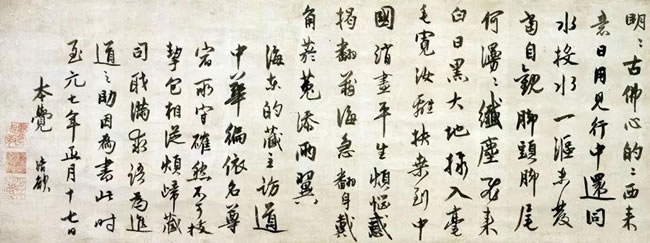 明〻古佛心的〻西来
意日用見行中還同
水投水一漚未發
當自覷脚頭脚尾
何漫〻纖塵不来
白日黑大地撮入毫
毛竅汝離扶桒到中
國消盡平生煩惱惑
揭翻苦海急翻身戴
角於菟添兩翼
海東的藏主訪道
中華徧依名尊
宿所守確然不可拔
挈包相從煩歸藏
司職滿求語為進
道之助因為書此時
至元七年正月十七日
本覺 清欲